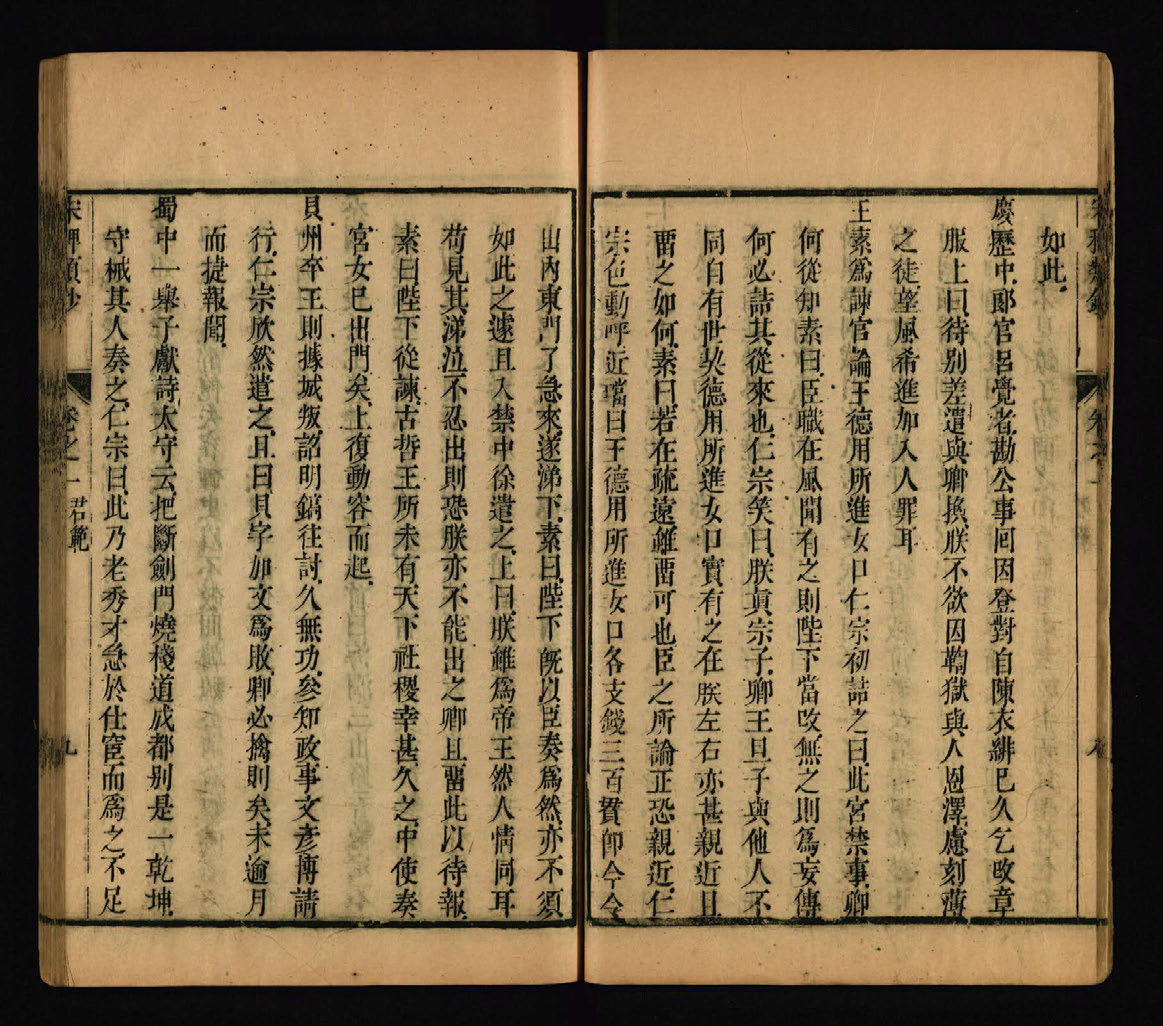 宋稗類鈔
卷之一
如此.
慶歷中.郎官呂覺者.勘公事回因登對自陳衣緋巳久乞攺章
服上曰.待别差遣與卿換.朕不欲因鞫獄與人恩澤.慮刻薄
之徒望風希進加入人罪耳
王素爲諫官論王德用所進女口仁宗初詰之曰.此宮禁事.卿
何從知素曰.臣職在風聞有之則陛下當攺無之則爲妄傳
何必詰其從來也.仁宗笑曰.朕眞宗子.卿王旦子與他人不
同自有世契德用所進女口實有之在朕左右亦甚親近且
畱之如何.素曰.若在疏遠雖畱可也臣之所論正恐親近.仁
宗色動呼近璫曰王德用所進女口各支錢三百貫卽今令
出內東門了急來.遂涕下.素曰.陛下旣以臣奏爲然.亦不須
如此之遽且入禁中徐遣之.上曰.朕雖爲帝王然人情同耳
苟見其涕泣不忍出則恐朕亦不能出之卿且畱此以待報.
素曰陛下從諫.古哲王所未有天下社稷幸甚久之.中使奏
宮女巳出門矣.上復動容而起.
貝州卒王則據城叛.詔明鎬往討.久無功.參知政事文彥博請
行.仁宗欣然遣之.且曰貝字加文爲敗.卿必擒則矣.未逾月
而捷報聞.
蜀中一舉子獻詩.太守云把斷劍門燒棧道成都别是一乾坤.
守械其人奏之.仁宗曰.此乃老秀才急於仕宦而爲之不足
宋稗類鈔
卷之一 君範
九